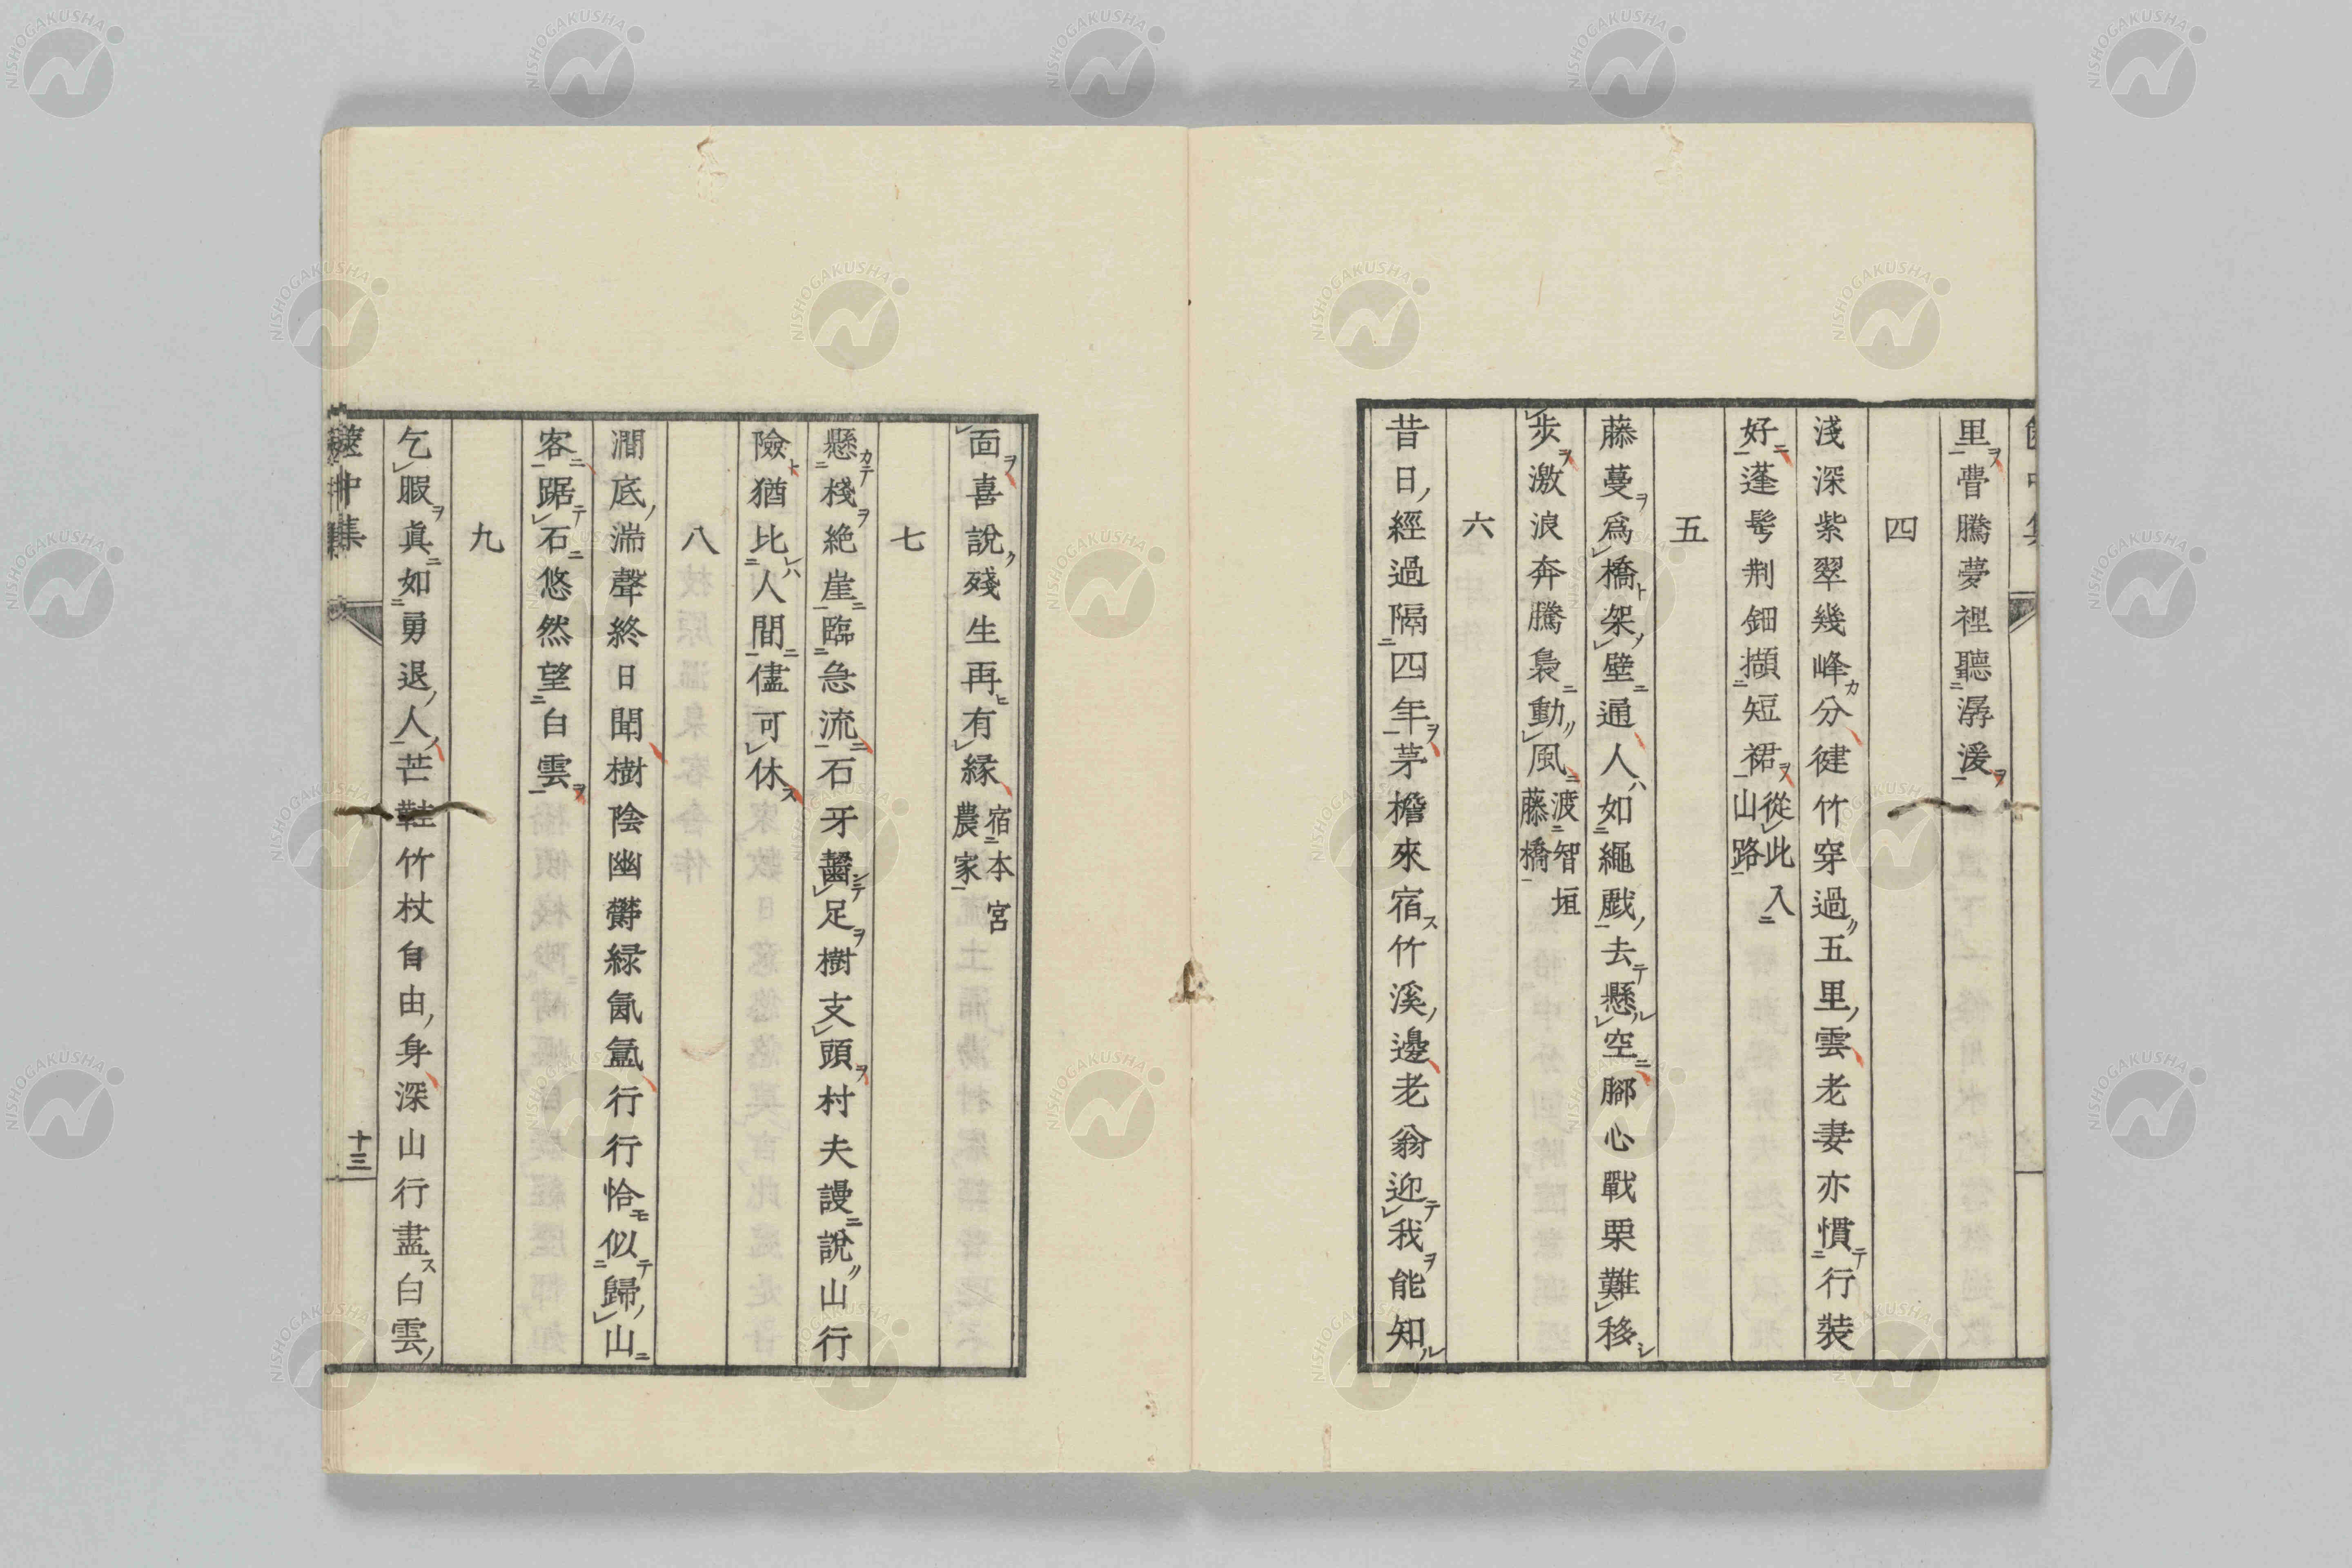 里瞢騰夢裡聽潺湲
四
淺深紫翠幾峰分徤竹穿過五里雲老妻亦慣行裝
好蓬髩荆鈿擷短裙從此入山路
五
藤蔓爲橋架壁通人如繩戯去懸空脚心戰栗難移
步激浪奔騰裊動風渡智垣藤橋
六
昔日經過隔四年茅檐來宿竹溪邊老翁迎我能知
面喜說殘生再有縁宿本宮農家
七
懸棧絶崖臨急流石牙齧足樹支頭村夫謾說山行
險猶比人間儘可休
八
澗底湍聲終日聞樹陰幽鬱緑氤氳行行恰似歸山
客踞石悠然望白雲
九
乞暇眞如勇退人芒鞋竹杖自由身深山行盡白雲
中集
十三
NISHOGAKUSHA